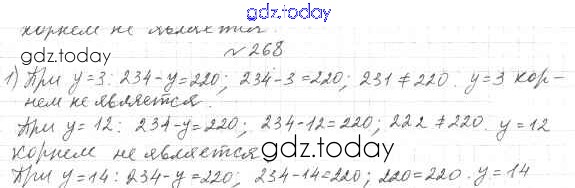 gdz.today
корнем не является.
gdz.today
№ 268
1) При y=3: 234-y=220; 234-3=220; 231≠220. y=3 кор-
нем не является.
При y=12: 234-y=220; 234-12=220; 222≠220. y=12
корнем не является
gdz.today
При y=14: 234-y=220; 234-14=220; 220=220. y=14